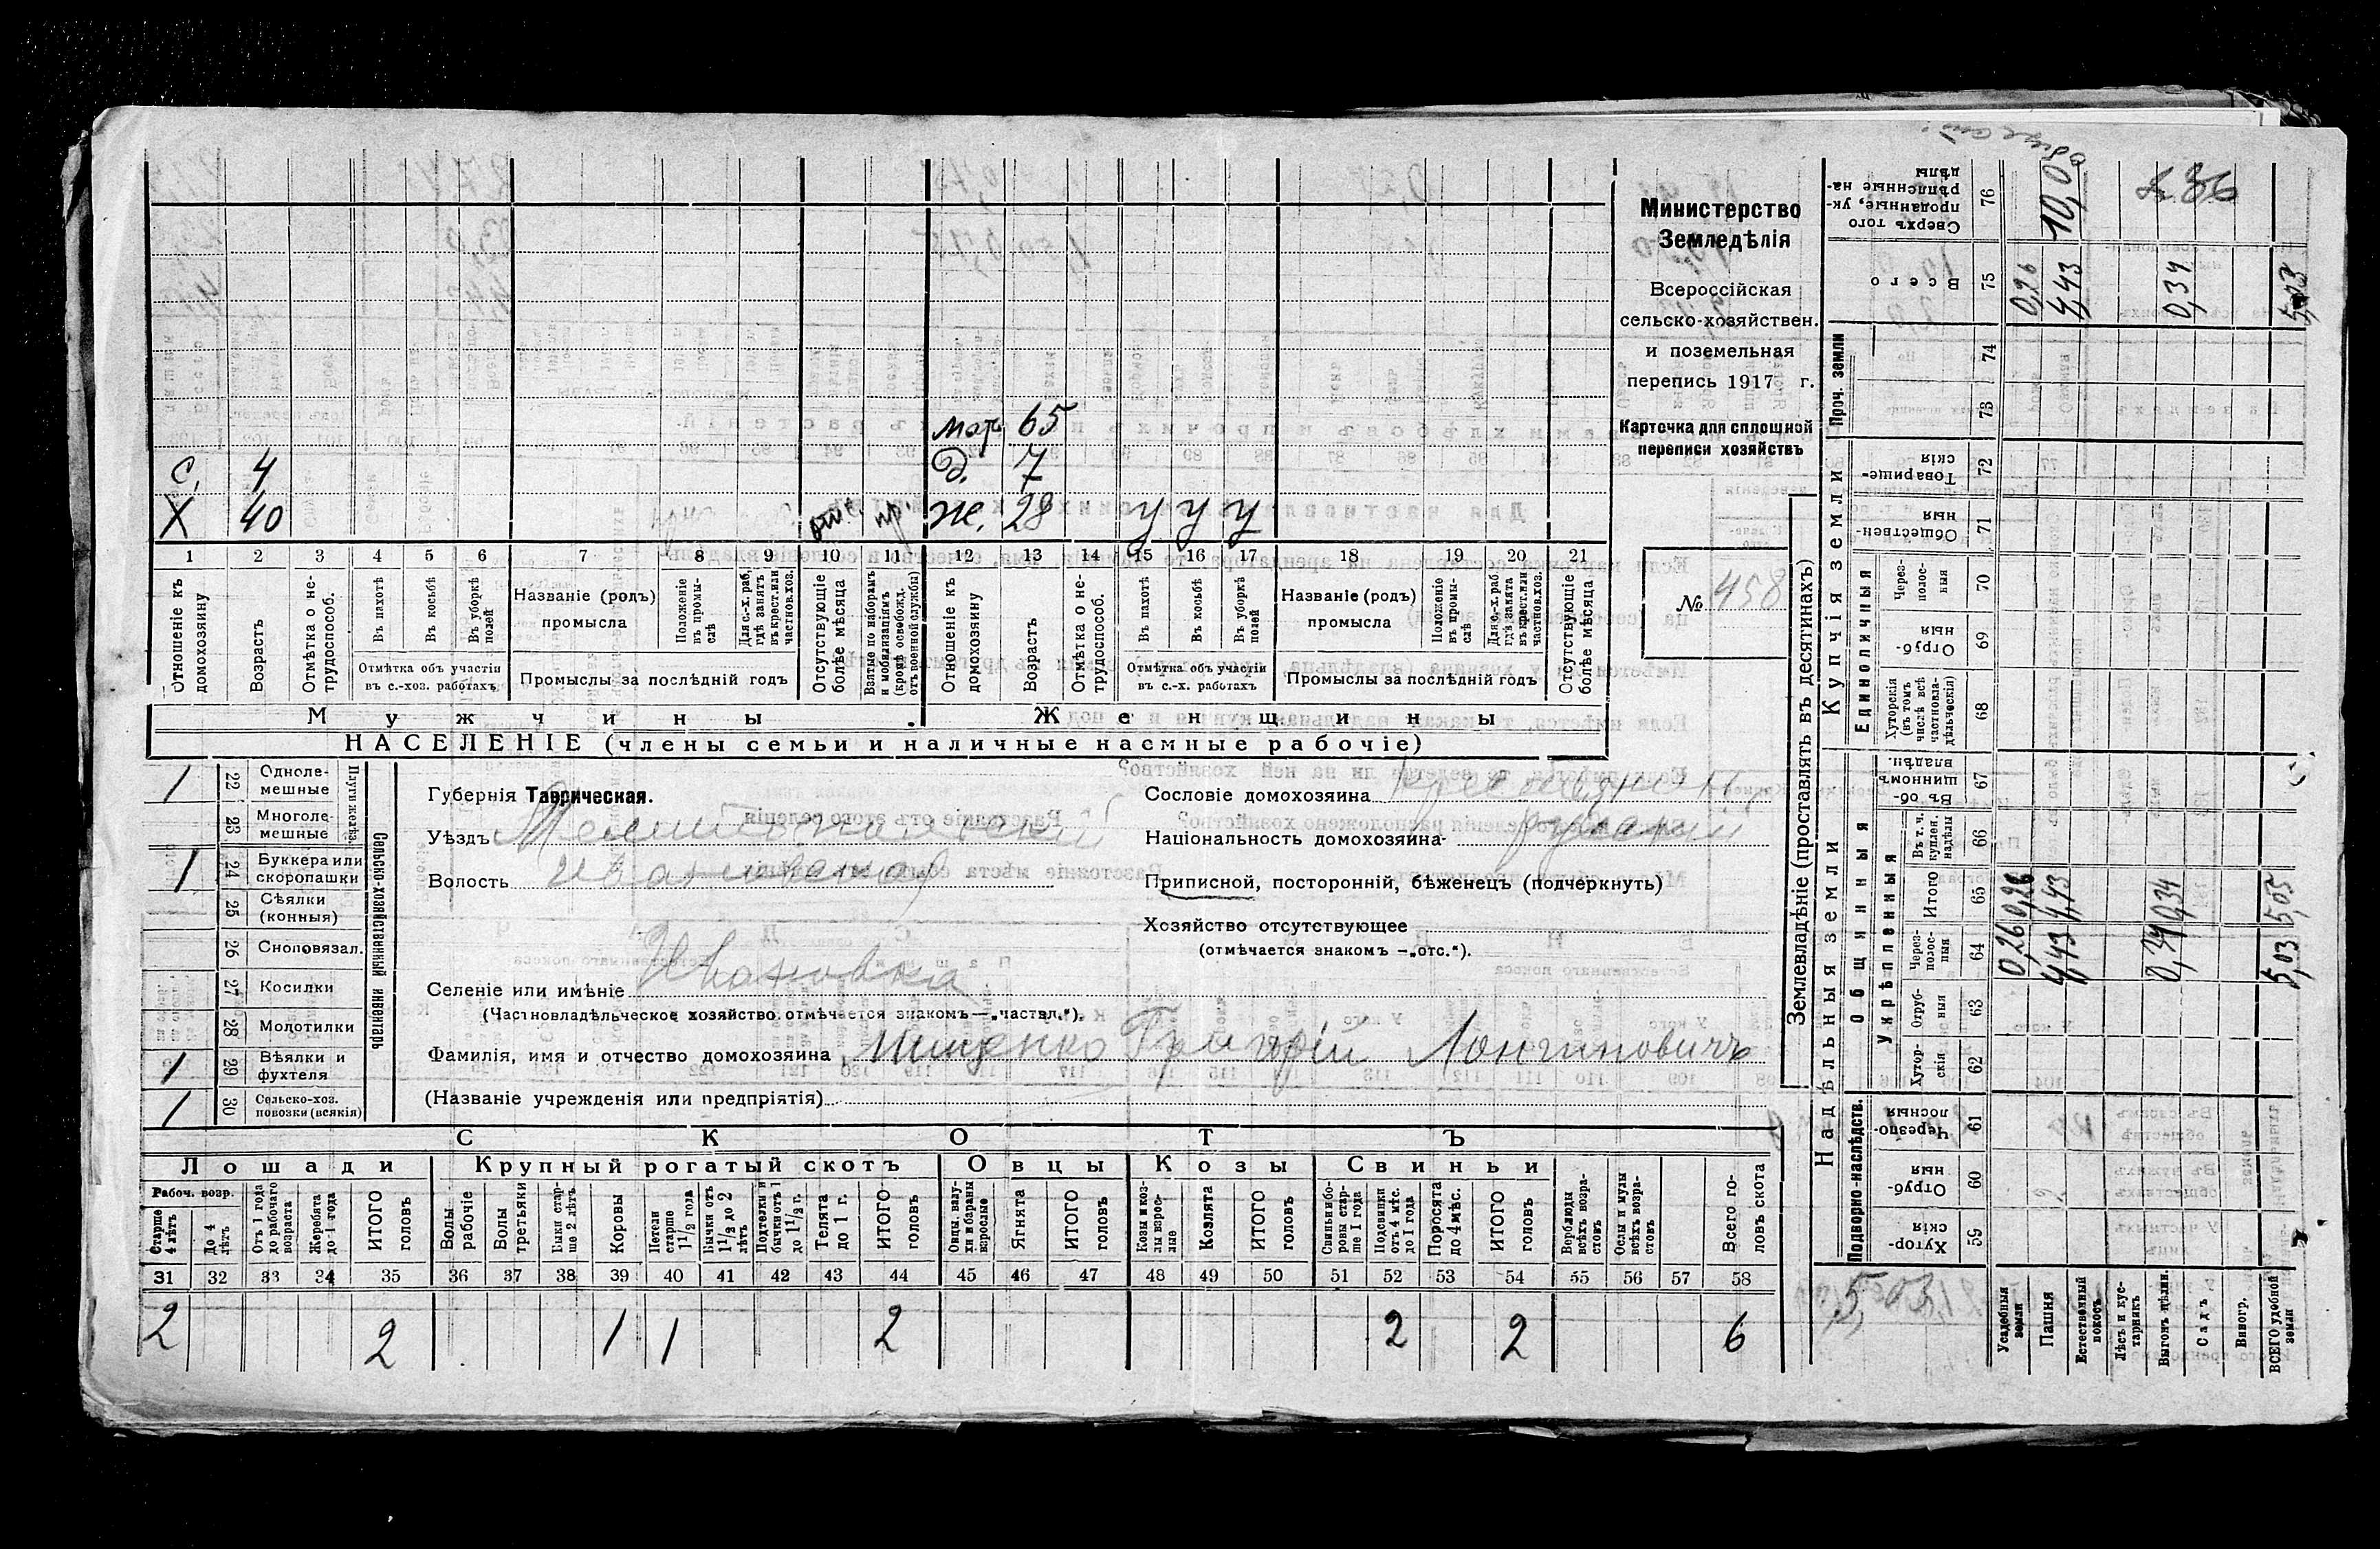 мат. 65
С. 4 д. 7
Х 40 отс. пр. ж. 28 у у у
1 2 3 4 5 6 7 8 9 10 11 12 13 14 15 16 17 18 19 20 21
Отношеніе къ домохозяину
Возрастъ
Отмѣтка о не-трудоспособ.
Въ пахотѣ
Въ косьбѣ
Въ уборкѣ полей
Отмѣтка объ участіи
въ с.-хоз. работахъ
Названіе (родъ)
промысла
Положеніе въ промы-слѣ
Для с.-х. раб, гдѣ занятъ въ крест.или частнов.хоз.
Промыслы за послѣдній годъ
Отсутствующіе болѣе мѣсяца
Взятые по наборамъ и мобилизаціямъ (кромѣ освобожд. отъ военной службы)
Отношеніе къ домохозяину
Возрастъ
Отмѣтка о не-трудоспособ.
Въ пахотѣ
Въ косьбѣ
Въ уборкѣ полей
Отмѣтка объ участіи
въ с.-х. работахъ
Названіе (родъ)
промысла
Положеніе въ промы-слѣ
Для с.-х. раб гдѣ занята въ крест.или частнов.хоз.
Промыслы за послѣдній годъ
Отсутствующіе болѣе мѣсяца
Мужчины Женщины
НАСЕЛЕНІЕ (члены семьи и наличные насмные рабочіе)
Министерство
Земледѣлія
Всероссійская
сельско-хозяйствен.
и поземельная
перепись 1917 г.
Карточка для сплошной
переписи хозяйствъ
№ 458
Сельско-хозяйственный инвентарь
Плуги желѣз.
1 22 Одноле-мешные
23 Многоле-мешные
1 24 Буккера или скоропашки
25 Сѣялки (конныя)
26 Сноповязал.
27 Косилки
28 Молотилки
1 29 Вѣялки и фухтеля
1 30 Сельско-хоз. повозки (всякія)
Губернія Таврическая.
Уѣздъ Мелитопольскій
Волость Ивановская
Селеніе или имѣніе Ивановка
(Частновладѣльческое хозяйство отмѣчается знакомъ—„частвл.").
Фамилія, имя и отчество домохозяина Мищенко Григорій Лонгиновичъ
(Названіе учрежденія или предпріятія)
Сословіе домохозяина
Національность домохозяина русскій
Приписной, посторонній, бѣженецъ (подчеркнуть)
Хозяйство отсутствующее
(отмѣчается знакомъ —„отс.").
СКОТЪ
Лошади Крупный рогатый скотъ Овцы Козы Свиньи
Рабоч. возр.
Старше 4 лѣтъ
До 4 лѣтъ
Отъ 1 года до рабочаго возраста
Жеребята до 1 года
ИТОГО головъ
Волы рабочіе
Волы третьяки
Быки стар-ше 2 лѣтъ
Коровы
Нетели старше 1 1/2 года
Бычки отъ 1 1/2 до 2 лѣтъ
Подтелки и бычки отъ 1 до 1 1/2 г.
Телята до 1 г.
ИТОГО головъ
Овцы, валу-хи и бараны взрослые
Ягнята
ИТОГО головъ
Козы и коз-лы взрос-лые
Козлята
ИТОГО головъ
Свиньи и бо-ровы стар-ше 1 года
Подсвинки отъ 4 мѣс. до 1 года
Поросята до 4 мѣс.
ИТОГО головъ
Верблюды всѣхъ возра-стовъ
Ослы и мулы всѣхъ возра-стовъ
Всего го-ловъ скота
31 32 33 34 35 36 37 38 39 40 41 42 43 44 45 46 47 48 49 50 51 52 53 54 55 56 57 58
2 2 1 1 2 2 2 6
Землевладѣніе (проставлять въ десятинахъ)
Надѣльныя земли Купчія земли Проч. земли
Подворно-наслѣдств.
Общинныя
Укрѣпленныя
Единоличныя
59 Хутор-скія
60 Отруб-ныя
61 Черезпо-лосныя
62 Хутор-скія
63 Отруб-ныя
64 Через-полос-ныя
65 Итого
66 Въ т. ч. куплен. надѣлы
67 Въ об-щинномъ владѣн.
68 Хуторскія (въ томъ числѣ всѣ частновла-дѣльческія)
69 Отруб-ныя
70 Через-полос-ныя
71 Обществен-ныя
72 Товарище-скія
73
74
75 Всего
76 Сверхъ того проданные, ук-рѣпленные на-дѣлы
5,03
Усадебныя земли 0,26 0,26 0,26
Пашня 4,43 4,43 4,43 10,0
Естественный покосъ
Лѣсъ и кус-тарникъ
Выгонъ цѣлин. 0,34 0,34 0,34
Садъ
Виногр.
ВСЕГО удобной земли 5,03 5,03 5,03